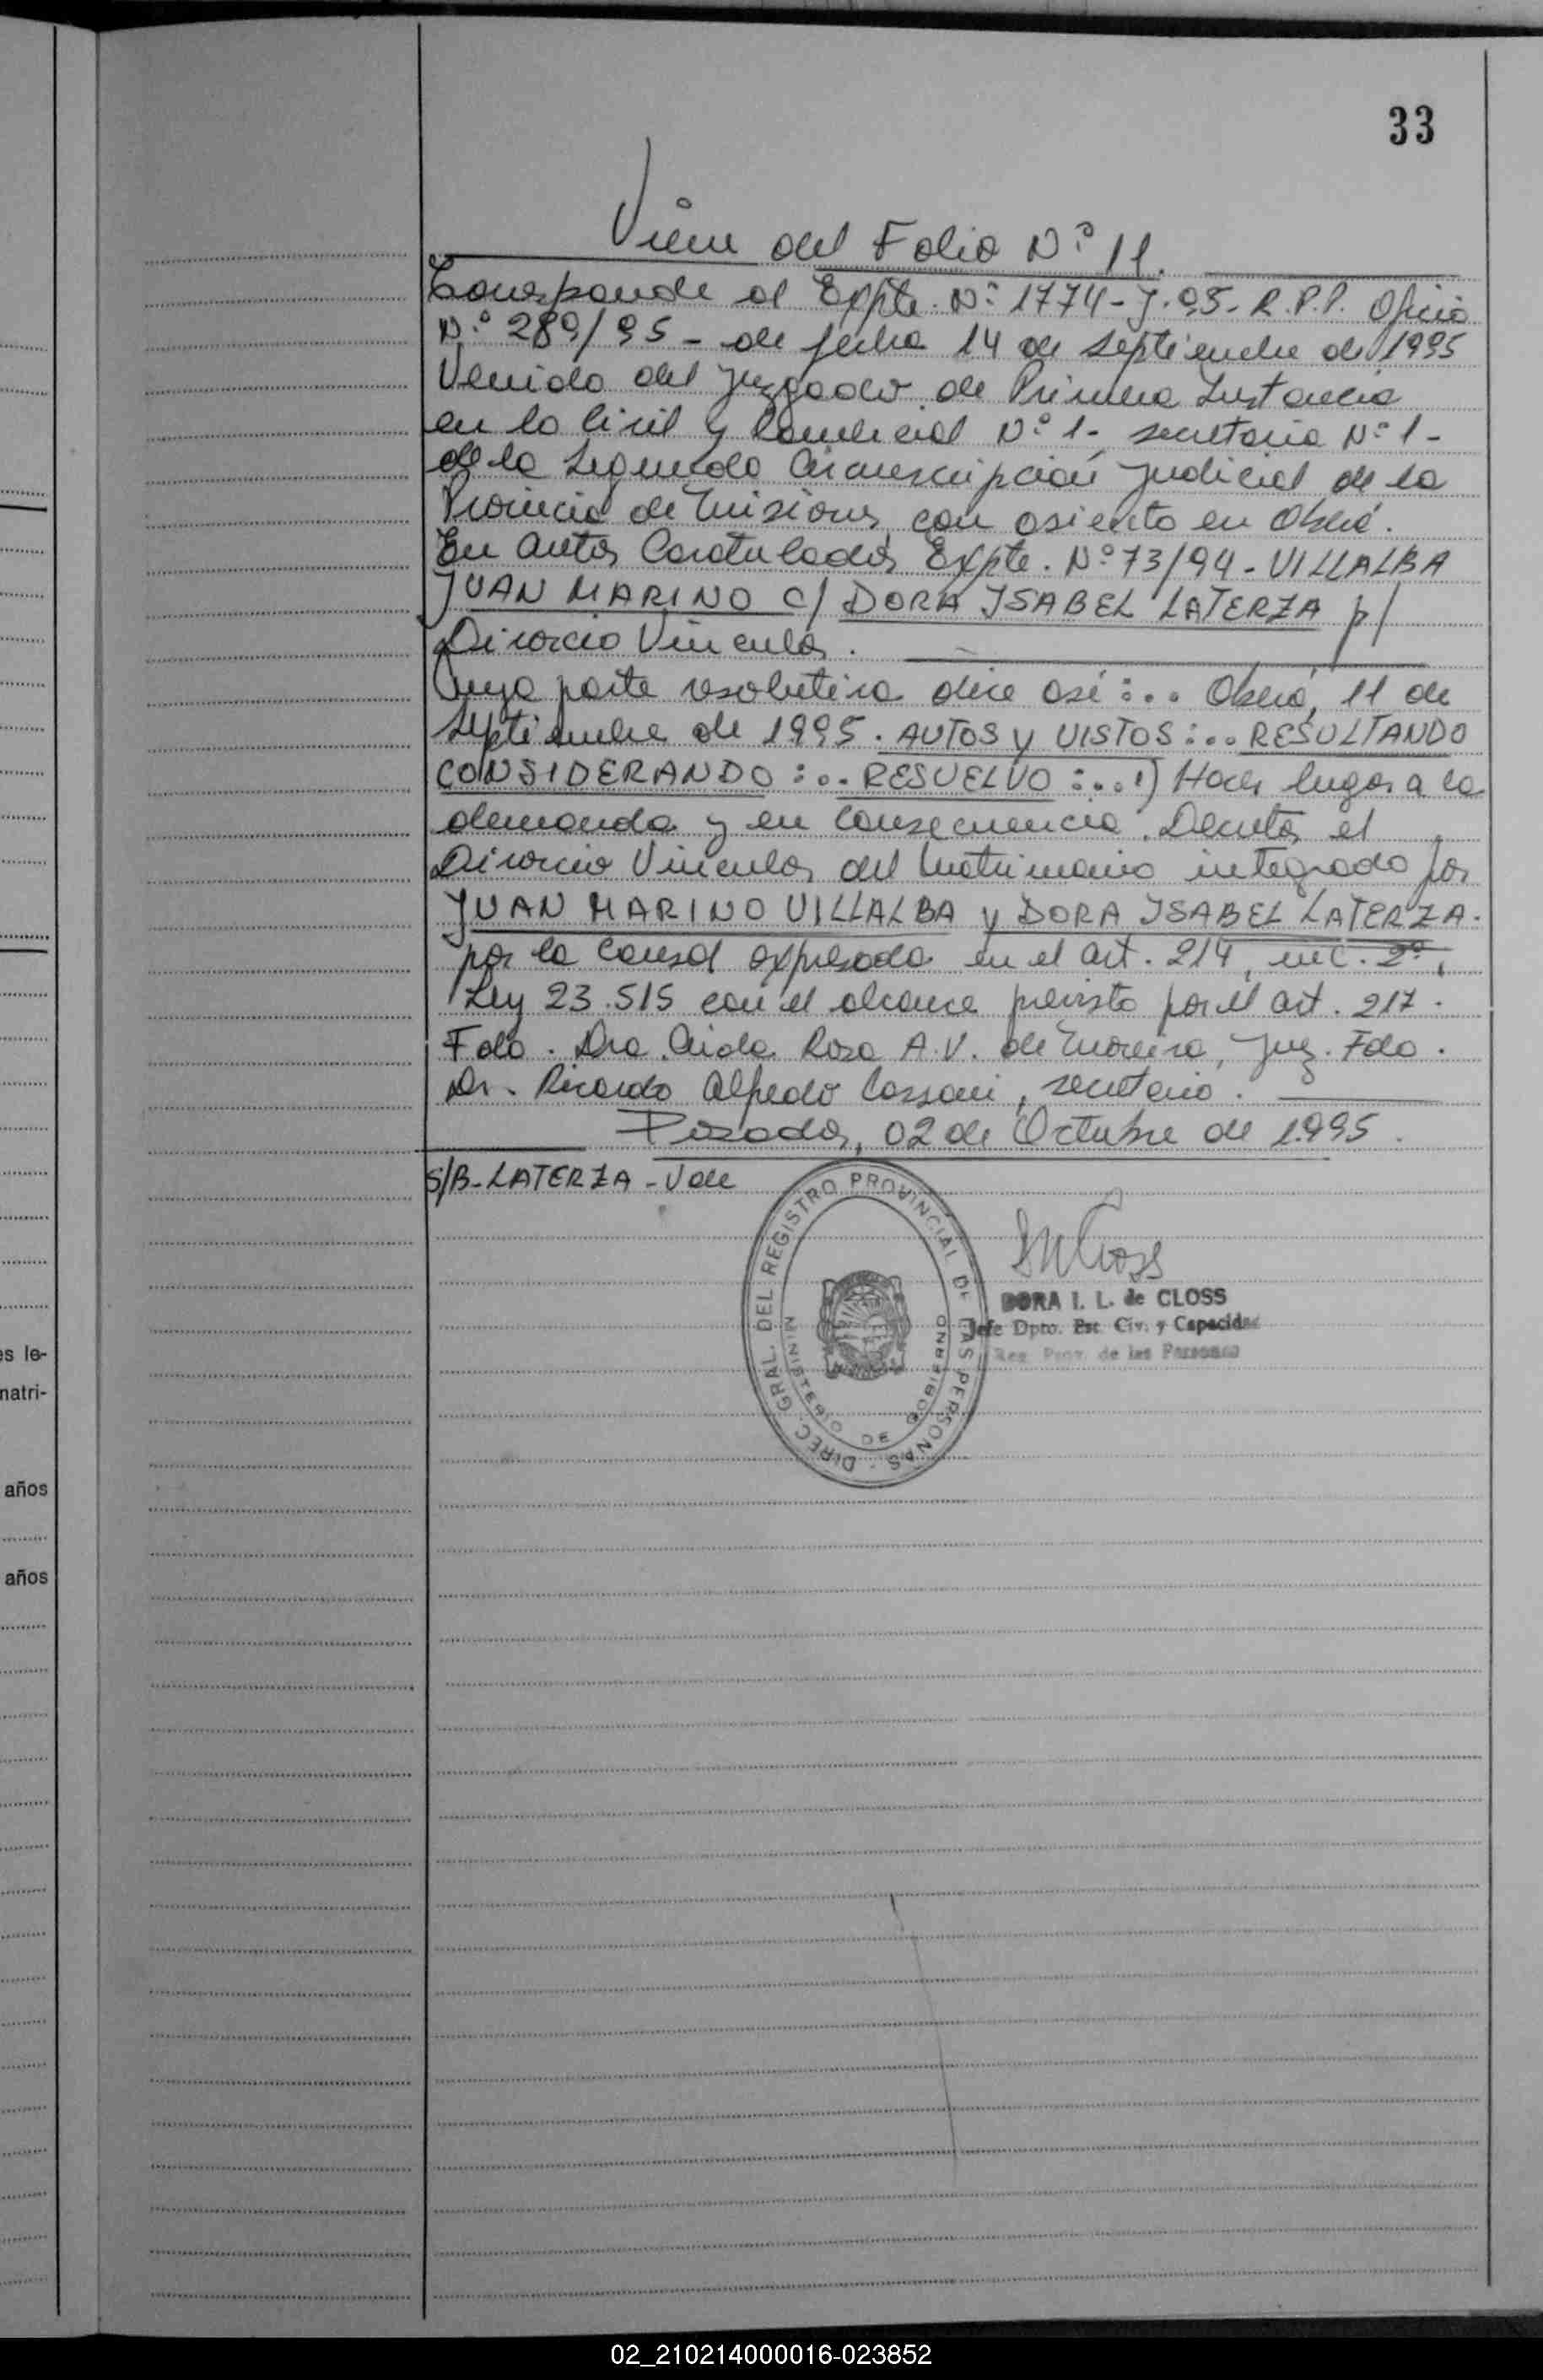 33
Viene del Folio N° 11.
Corresponde al Expte. N° 1774-J-95- R.P.P. Oficio
N° 289/95 - de fecha 14 de septiembre de 1995
Venido del Juzgado de Primera Instancia
en lo Civil y Comercial N° 1- secretaria N° 1-
de la Segunda Circunscripción Judicial de la
Provincia de Misiones, con asiento en Oberá.
En autos Caratulados Expte. N° 73/94 - VILLALBA
JUAN MARINO c/ DORA ISABEL LATERZA p/
Divorcio Vincular.
Cuya parte resolutiva dice así:... Oberá, 11 de
septiembre de 1995. AUTOS y VISTOS:... RESULTANDO
CONSIDERANDO:... RESUELVO:...1) Hacer lugar a la
demanda y en consecuencia Decretar el
Divorcio Vincular del matrimonio integrado por
JUAN MARINO VILLALBA y DORA ISABEL LATERZA.
por la causal expresada en el art. 214, inc. 2°,
Ley 23.515 con el alcance previsto por el art. 217.
Fdo. Dra. Rosa A.V. de Moreira, Juez. Fdo.
Dr. Ricardo Alfredo Cassoni, secretario.
Posadas, 02 de Octubre de 1.995.
S/B-LATERZA - Vale
DIREC. GRAL. DEL REGISTRO PROVINCIAL DE LAS PERSONAS
MINISTERIO DE GOBIERNO
DORA I. L. de CLOSS
Jefe Dpto. Est. Civ. y Capacidad
Reg. Prov. de las Personas
es le-
natri-
años
años
02_210214000016-023852